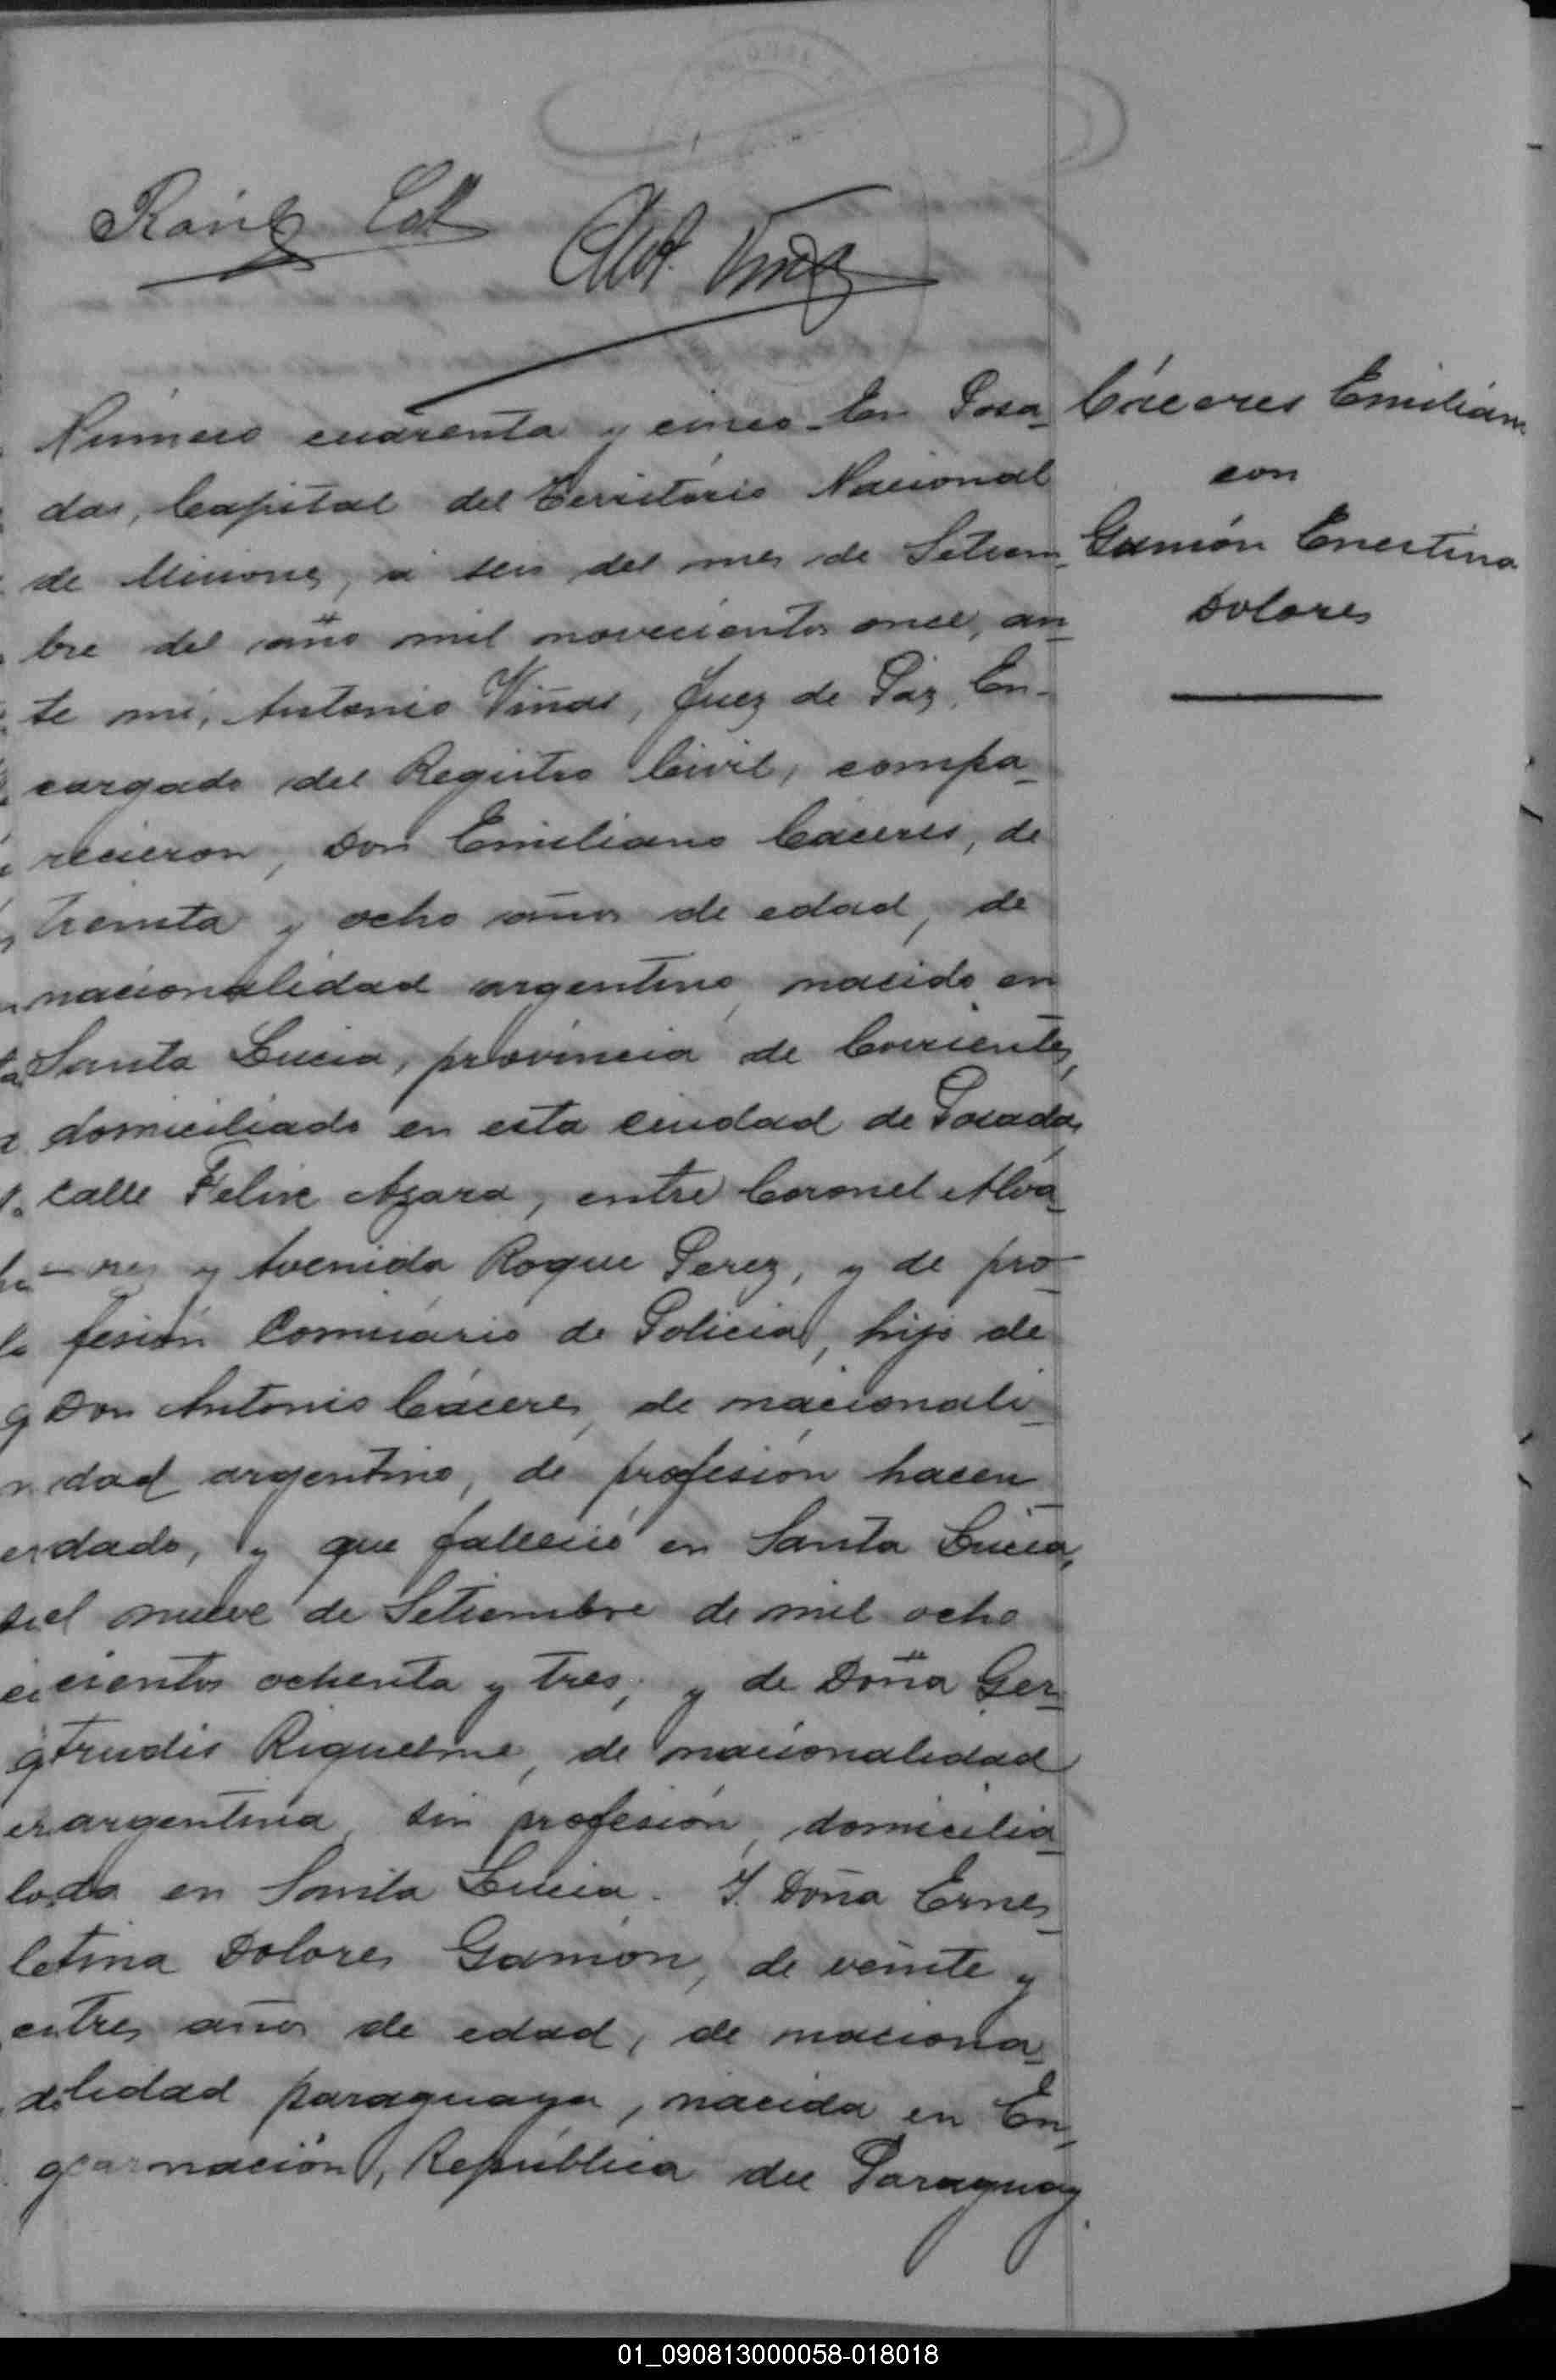 Número cuarenta y cinco. En Posa-
das, Capital del Territorio Nacional
de Misiones, á seis del mes de Setiem-
bre del año mil novecientos once, an-
te mí, Antonio Viñas, Juez de Paz, En-
cargado del Registro Civil, compa-
recieron, Don Emiliano Cáceres, de
treinta y ocho años de edad, de
nacionalidad argentino, nacido en
Santa Lucia, provincia de Corrientes,
domiciliado en esta ciudad de Posadas,
calle Felix Azara, entre Coronel Alva-
res y Avenida Roque Perez, y de pro-
fesión Comisario de Policia, hijo de
Don Antonio Cáceres, de nacionali-
dad argentino, de profesión hacen-
dado, y que falleció en Santa Lucia,
el nueve de Setiembre de mil ocho
cientos ochenta y tres, y de Doña Ger-
trudis Riquelme, de nacionalidad
argentina, sin profesión, domicilia-
da en Santa Lucia. Y Doña Ernes-
tina Dolores Gamón, de veinte y
tres años de edad, de naciona-
lidad paraguaya, nacida en En-
carnación, República del Paraguay,
Cáceres Emiliano
con
Gamón Ernestina
Dolores
01_090813000058-018018